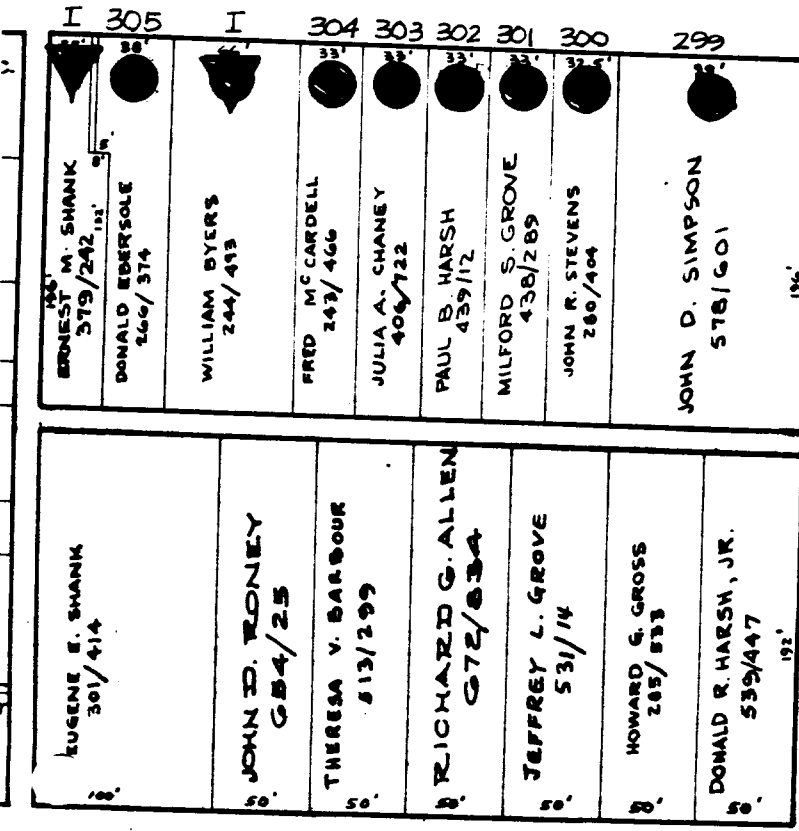 I 305 I 304 303 302 301 300 299
38' 33' 33' 33' 33' 32.5'
ERNEST M. SHANK
379/242
196'
102'
DONALD EBERSOLE
266/374
WILLIAM BYERS
244/493
FRED McCARDELL
243/466
JULIA A. CHANEY
406/722
PAUL B. HARSH
439/12
MILFORD S. GROVE
438/289
JOHN R. STEVENS
280/404
JOHN D. SIMPSON
578/601
196'
EUGENE E. SHANK
301/414
100'
JOHN D. RONEY
684/25
50'
THERESA V. BARBOUR
613/299
50'
RICHARD G. ALLEN
672/834
50'
JEFFREY L. GROVE
531/14
50'
HOWARD G. GROSS
285/533
50'
DONALD R. HARSH, JR.
539/447
192'
50'